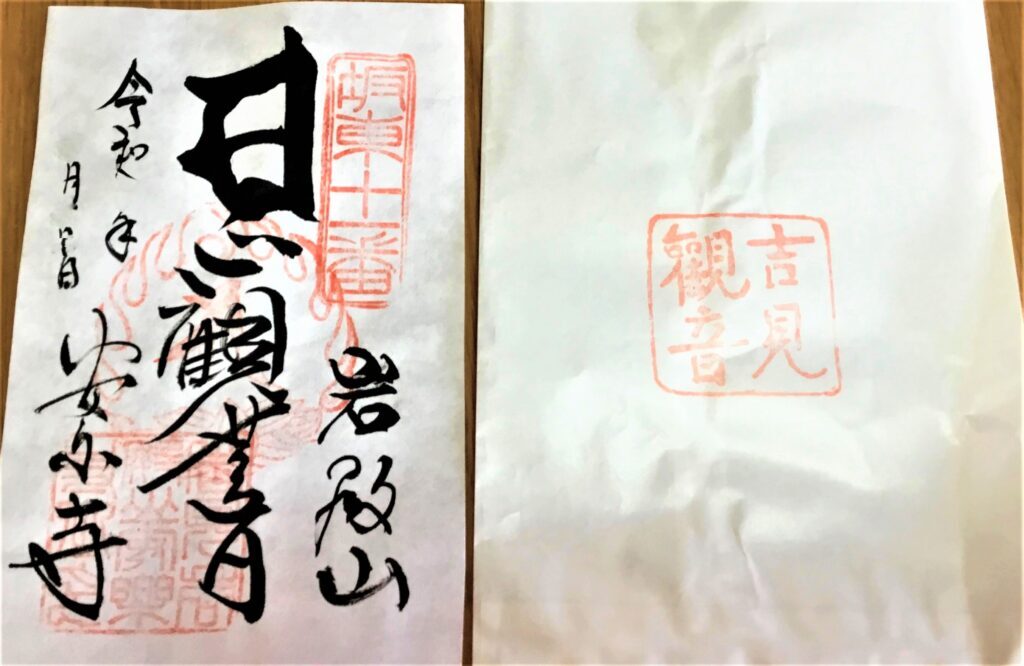 坂東十一番
岩殿山
觀世音
令和 年
月 日
安楽寺
吉見
觀音